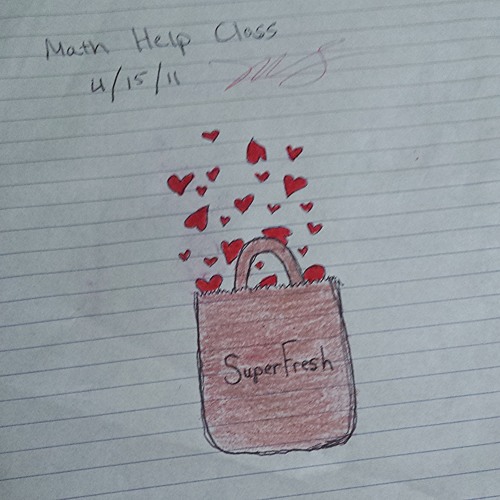 Math Help Class
4/15/11
SuperFresh